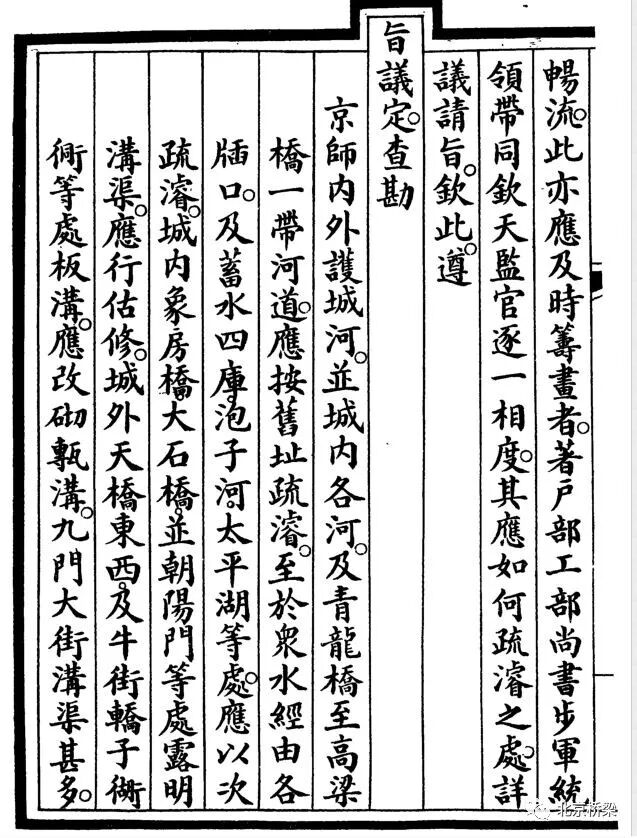 暢流。此亦應及時籌畫者。著戸部工部尚書步軍統
領帶同欽天監官逐一相度。其應如何疏濬之處。詳
議請旨。欽此。遵
旨議定。查勘
京師内外護城河。並城内各河。及青龍橋至高梁
橋一帶河道。應按舊址疏濬。至於衆水經由各
牐口。及蓄水四庫。泡子河。太平湖等處。應以次
疏濬。城内象房橋。大石橋。並朝陽門等處露明
溝渠。應行估修。城外天橋東西。及牛街轎子衚
衕等處板溝。應改砌甎溝。九門大街溝渠甚多。
北京桥梁